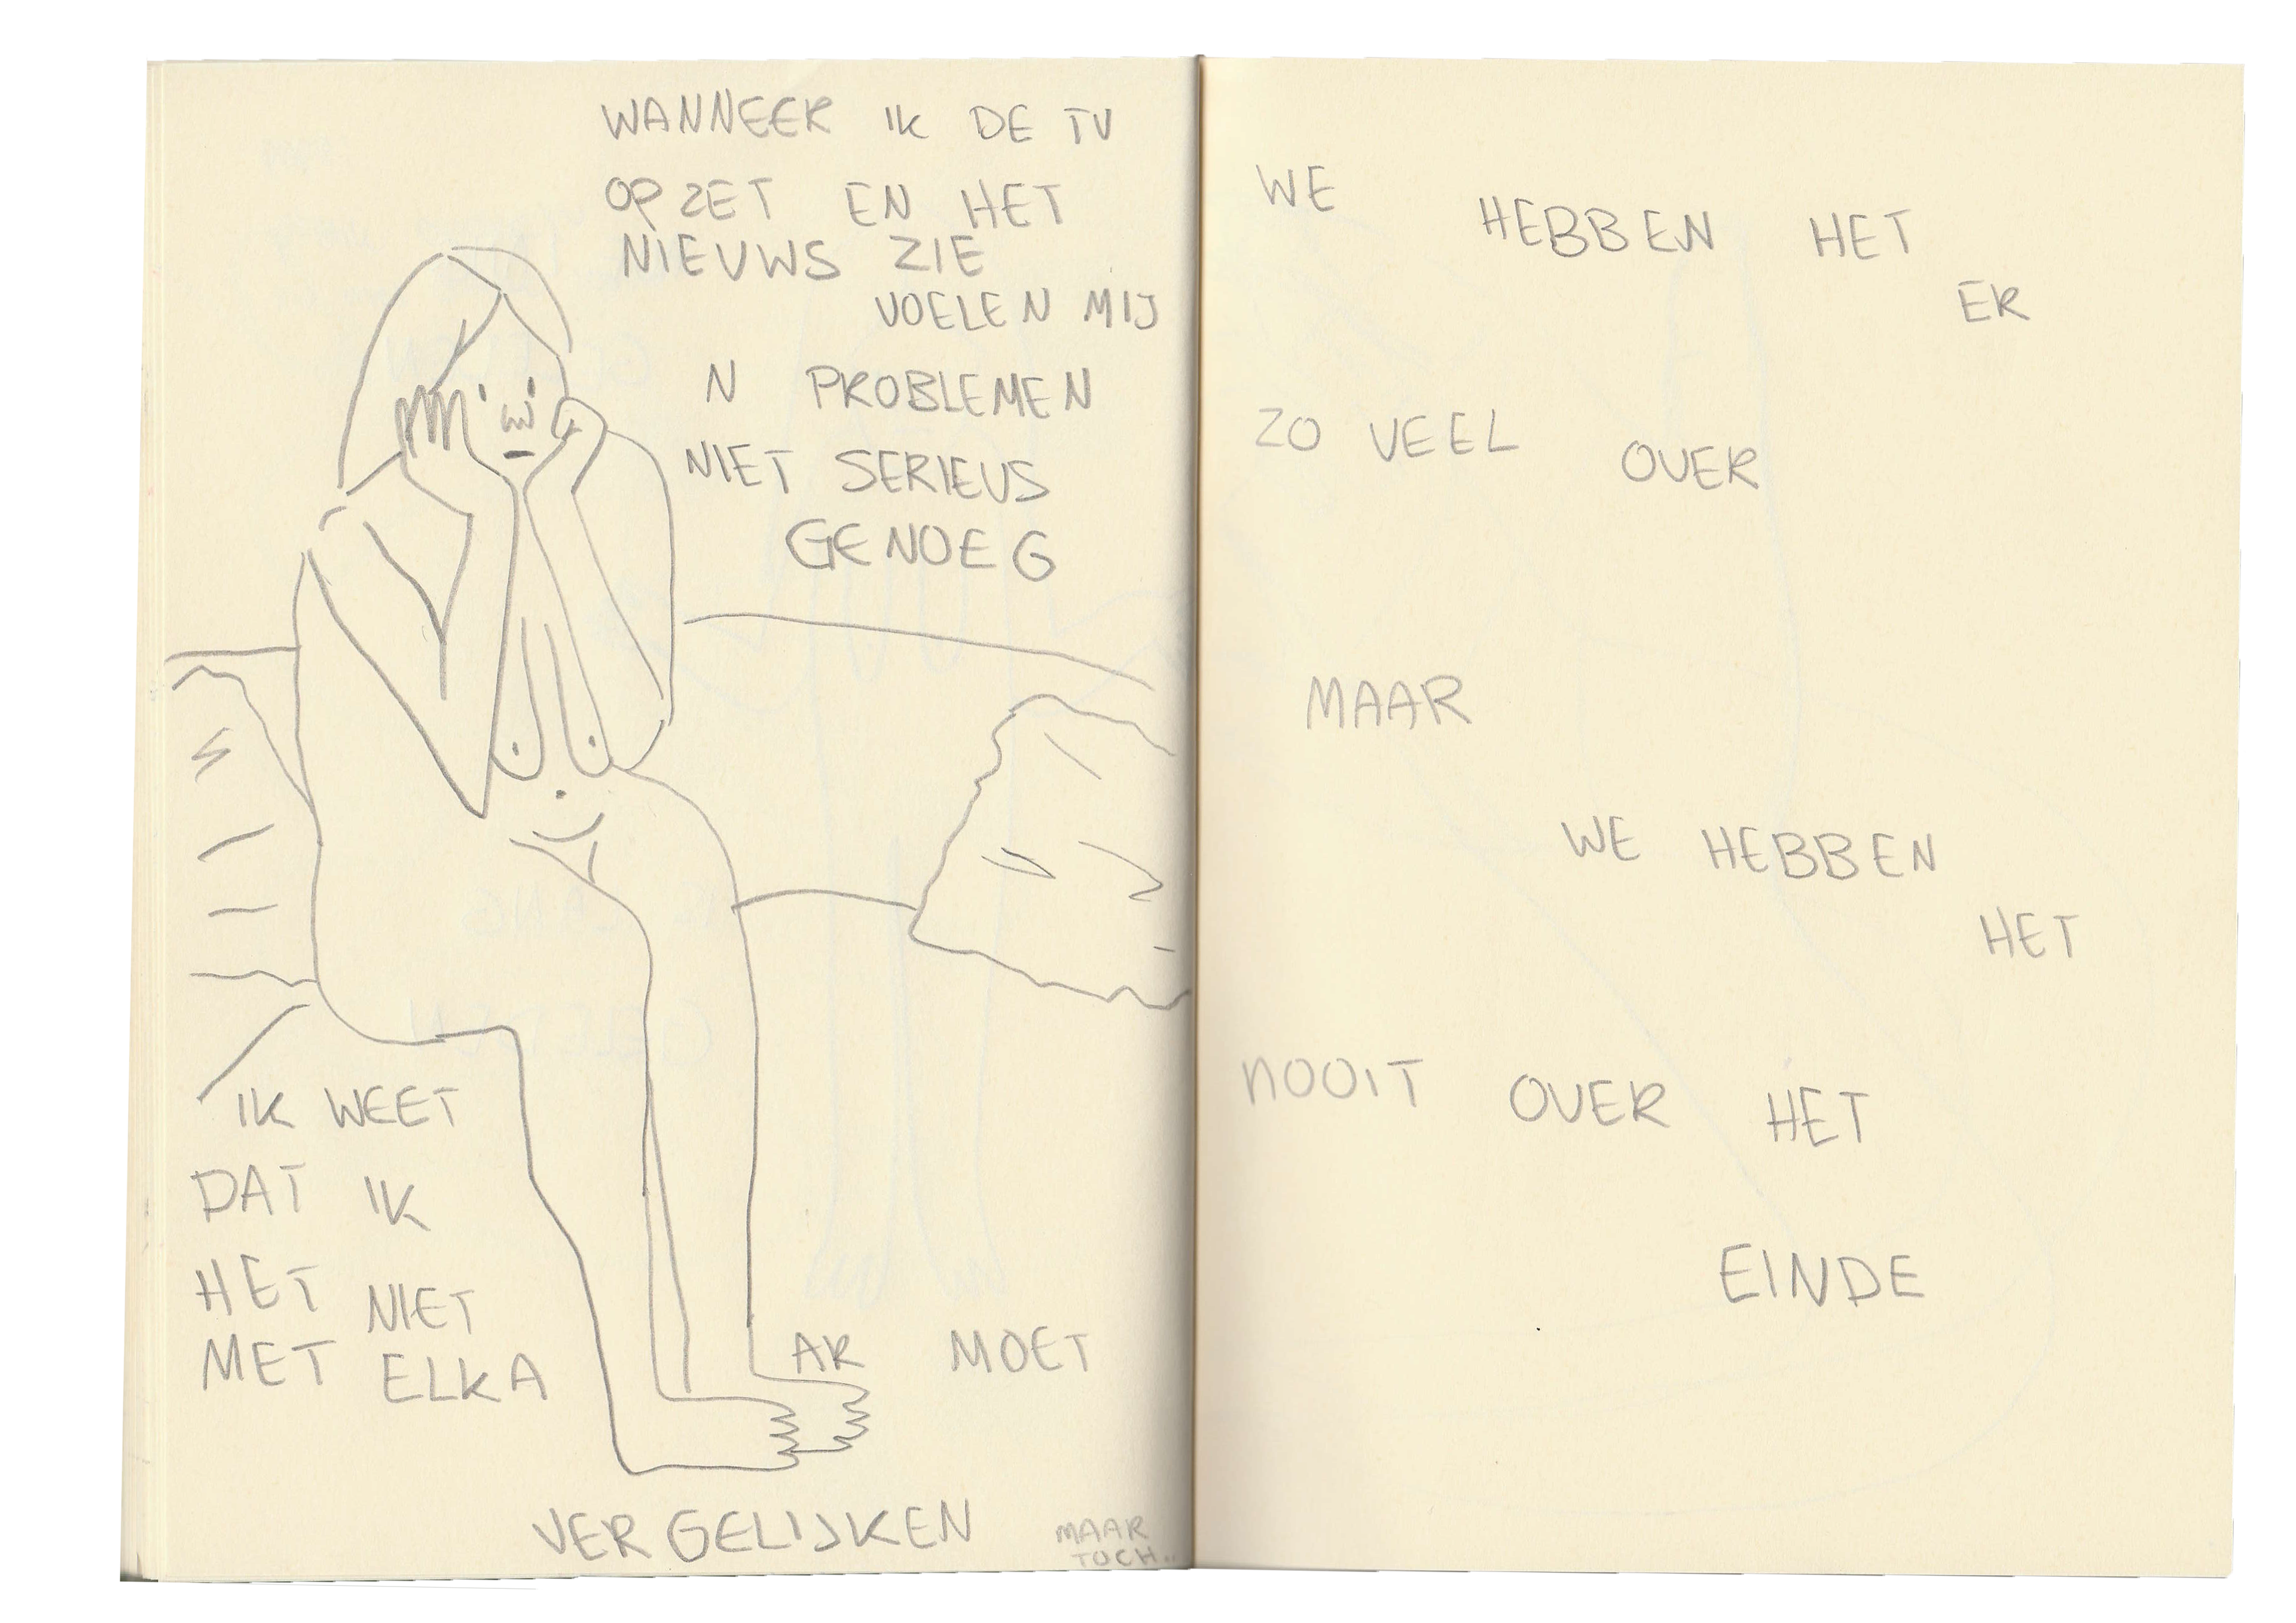 WANNEER IK DE TV
OPZET EN HET
NIEUWS ZIE
VOELEN MIJ
N PROBLEMEN
NIET SERIEUS
GENOEG
IK WEET
DAT IK
HET NIET
MET ELKA AR MOET
VERGELIJKEN
MAAR
TOCH..
WE
HEBBEN HET
ER
ZO VEEL OVER
MAAR
WE HEBBEN
HET
NOOIT OVER HET
EINDE